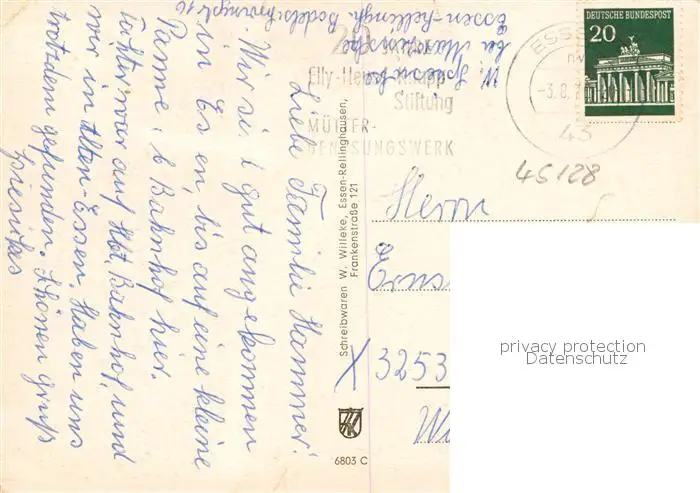 Liebe Familie Hammer!
Wir sind gut angekommen
in Essen, bis auf eine kleine
Panne, b Bahnhof hier.
Tochter war auf Hbt, Bahnhof, und
wir in Alten-Essen. Haben uns
trotzdem gefunden. Schönen Gruß
W.
Essen-Rellingh
Schreibwaren W. Willeke, Essen-Rellinghausen,
Frankenstraße 121
6803 C
20
Elly-Heuss-Knapp-
Stiftung
MÜTTER-
GENESUNGSWERK
ESSEN
-3.8.
43
DEUTSCHE BUNDESPOST
20
45128
Herrn
X 3253
privacy protection
Datenschutz